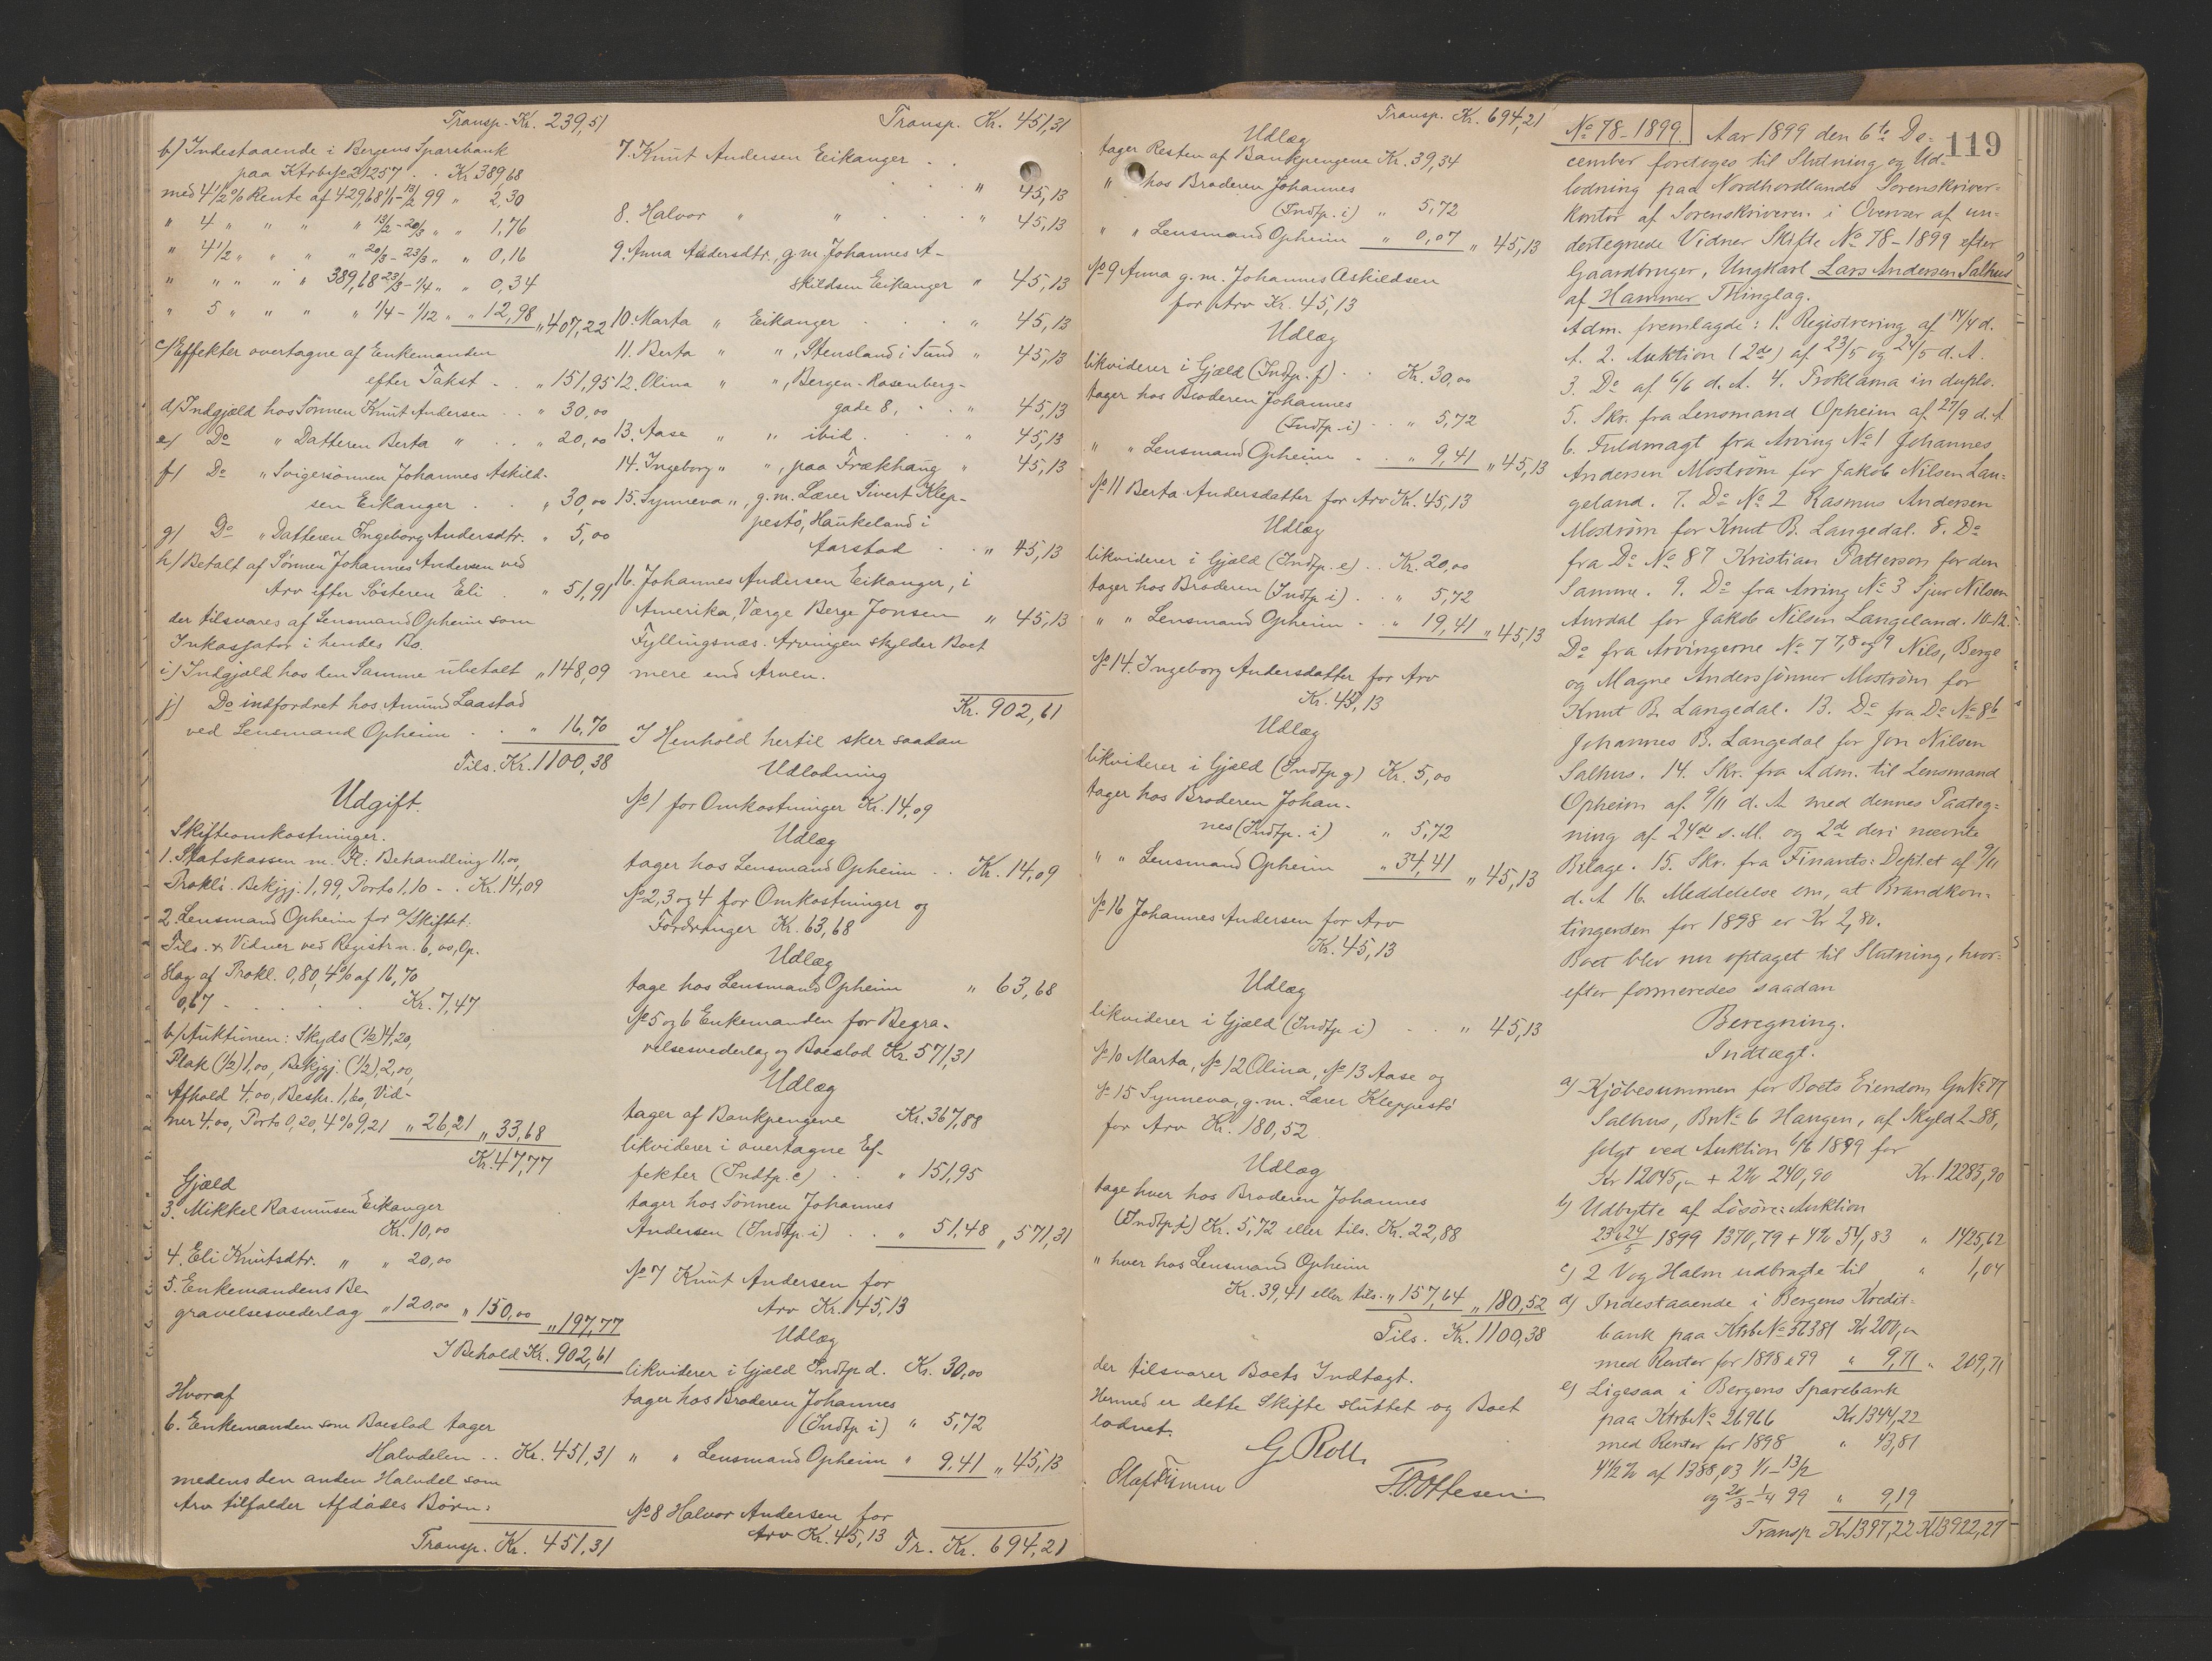 Transp. Kr. 239,51
b) Indestaaende i Bergens Sparebank
paa Ktrb. No 21257 . . Kr 389,68
med 4 1/2 % Rente af 429,68 1/1 - 13/2 99 " 2,30
" 4 " " " " 13/2 - 20/3 " " 1,76
" 4 1/2 " " " " 20/3 - 23/3 " " 0,16
" " " " " 389,68 23/3 - 1/4 " " 0,34
" 5 " " " " 1/4 - 1/12 " " 12,98 " 407,22
c) Effekter overtagne af Enkemanden
efter Takst . . " 151,95
d) Indgjæld hos Sønnen Knut Andersen . . " 30,00
e) Do " Datteren Berta " . . " 20,00
f) Do " Svigersønnen Johannes Askild-
sen Eikanger . . " 30,00
g) Do " Datteren Ingeborg Andersdtr. " 5,00
h) Betalt af Sønnen Johannes Andersen ved
Arv efter Søsteren Eli . " 51,91
der tilsvares af Lensmand Opheim som
Inkassator i hendes Bo.
i) Indgjæld hos den Samme ubetalt " 148,09
j) Do indfordret hos Amund Laastad
ved Lensmand Opheim . . " 16,70
Tils. Kr. 1100,38
Udgift.
Skifteomkostninger.
1. Statskassen m. Fl: Behandling 11,00,
Prokl. Bekjgj. 1,99, Porto 1,10 - . Kr. 14,09
2. Lensmand Opheim for a/Skiftet:
Tils. & Vidner ved Registr. 6,00, Op-
slag af Prokl. 0,80, 4% af 16,70
0,67 . . . . Kr. 7,47
b/ Auktionen: Skyds (1/2) 4,20,
Plak (1/2) 1,00, Bekjgj. (1/2) 2,00,
Afhold 4,00, Beskr. 1,60, Vid-
ner 4,00, Porto 0,20, 4% 9,21 " 26,21 " 33,68
Kr. 47,77
Gjæld
3. Mikkel Rasmussen Eikanger
Kr. 10,00
4. Eli Knutsdtr. " " 20,00
5. Enkemandens Be-
gravelsesvederlag " 120,00 " 150,00 " 197,77
I Behold Kr. 902,61
Hvoraf
6. Enkemanden som Boeslod tager
Halvdelen . . Kr. 451,31
medens den anden Halvdel som
Arv tilfalder Afdødes Børn:
Transp. Kr. 451,31
Transp. Kr. 451,31
7. Knut Andersen Eikanger . .
. . . " 45,13
8. Halvor " " . . . " 45,13
9. Anna Andersdtr., g.m. Johannes A-
skildsen Eikanger " 45,13
10. Marta " Eikanger . . . " 45,13
11. Berta " ", Stensland i Sund " 45,13
12. Olina " ", Bergen - Rosenberg-
gade 8, . . " 45,13
13. Aase " " ibid. . . . " 45,13
14. Ingeborg " ", paa Frækhaug " 45,13
15. Synneva ", g.m. Lærer Sivert Klep-
pestø, Haukeland i
Aarstad . . " 45,13
16. Johannes Andersen Eikanger, i
Amerika, Værge Berge Jonsen " 45,13
Fyllingsnæs. Arvingen skylder Boet
mere end Arven.
Kr. 902,61
I Henhold hertil sker saadan
Udlodning
No 1 for Omkostninger Kr. 14,09
Udlæg
tager hos Lensmand Opheim . . Kr. 14,09
No 2, 3 og 4 for Omkostninger og
Fordringer Kr. 63,68
Udlæg
tage hos Lensmand Opheim " 63,68
No 5 og 6 Enkemanden for Begra-
velsesvederlag og Boeslod Kr. 571,31
Udlæg
tager af Bankpengene Kr. 367,88
likviderer i overtagne Ef-
fekter (Indtp. c) . . " 151,95
tager hos Sønnen Johannes
Andersen (Indtp. i) . . " 51,48 " 571,31
No 7 Knut Andersen for
Arv Kr. 45,13
Udlæg
likviderer i Gjæld Indtp d. Kr. 30,00
tager hos Broderen Johannes
(Indtp i) " 5,72
" " Lensmand Opheim " 9,41 " 45,13
No 8 Halvor Andersen for
Arv Kr. 45,13 Tr. Kr. 694,21
Transp. Kr. 694,21
Udlæg
tager Resten af Bankpengene Kr. 39,34
" hos Broderen Johannes
(Indtp. i) " 5,72
" " Lensmand Opheim " 0,07 " 45,13
No 9 Anna g.m. Johannes Askildsen
for Arv Kr. 45,13
Udlæg
likviderer i Gjæld (Indtp. f) . . Kr. 30,00
tager hos Broderen Johannes
(Indtp. i) . . " 5,72
" " Lensmand Opheim . . " 9,41 " 45,13
No 11 Berta Andersdatter for Arv Kr. 45,13
Udlæg
likviderer i Gjæld (Indtp. e) . . Kr. 20,00
tager hos Broderen (Indtp i) . . " 5,72
" " Lensmand Opheim . . " 19,41 " 45,13
No 14. Ingeborg Andersdatter for Arv
Kr. 45,13
Udlæg
likviderer i Gjæld (Indtp g) Kr. 5,00
tager hos Broderen Johan-
nes (Indtp. i) " 5,72
" " Lensmand Opheim " 34,41 " 45,13
No 16 Johannes Andersen for Arv
Kr. 45,13
Udlæg
likviderer i Gjæld (Indtp i) . . " 45,13
No 10 Marta, No 12 Olina, No 13 Aase og
No 15 Synneva, g.m. Lærer Kleppestø
for Arv Kr. 180,52
Udlæg
tage hver hos Broderen Johannes
(Indtp i) Kr. 5,72 eller tils. Kr. 22,88
" hver hos Lensmand Opheim
Kr. 39,41 eller tils. " 157,64 " 180,52
Tils. Kr. 1100,38
der tilsvarer Boets Indtægt.
Hermed er dette Skifte sluttet og Boet
lodnet.
G. Roll.
Olaf
T. O. Ottesen
119
No 78 - 1899. Aar 1899 den 6te De-
cember foretoges til Slutning og Ud-
lodning paa Nordhordlands Sorenskriver-
kontor af Sorenskriveren i Overvær af un-
dertegnede Vidner Skifte No 78 - 1899 efter
Gaardbruger, Ungkarl Lars Andersen Salhus
af Hammer Thinglag.
Adm. fremlagde: 1. Registrering af 14/4 d.
A. 2. Auktion (2de) af 23/5 og 24/5 d. A.
3. Do af 6/6 d. A. 4. Proklama in duplo.
5. Skr. fra Lensmand Opheim af 27/9 d. A
6. Fuldmagt fra Arving No 1 Johannes
Andersen Mostrøm for Jakob Nilsen Lan-
geland. 7. Do No 2 Rasmus Andersen
Mostrøm for Knut B. Langedal. 8. Do
fra Do No 87 Kristian Patterson for den
Samme. 9. Do fra Arving No 3 Sjur Nilsen
Aurdal for Jakob Nilsen Langeland. 10-12.
Do fra Arvingerne No 7, 8 og 9 Nils, Berge
og Magne Anderssønner Mostrøm for
Knut B. Langedal. 13. Do fra Do No 8b
Johannes B. Langedal for Jon Nilsen
Salhus. 14. Skr. fra Adm. til Lensmand
Opheim af 9/11 d. A. med dennes Paateg-
ning af 24de s. M. og 2de deri nævnte
Bilage. 15. Skr. fra Finants: Dept.et af 9/11
d. A 16. Meddelelse om, at Brandkon-
tingenten for 1898 er Kr 2,80.
Boet blev nu optaget til Slutning, hvor-
efter formeredes saadan
Beregning.
Indtægt.
a) Kjöbesummen for Boets Eiendom Gn No 77
Salhus, Bn No 6 Haugen, af Skyld 2-88,
solgt ved Auktion 6/6 1899 for
Kr 12045,00 + 2% 240,90 Kr. 12283,90
b) Udbytte af Lösöre: Auktion
23 & 24/5 1899 1370,79 + 4% 54,83 " 1425,62
c) 2 Vog Halm udbragte til " 1,04
d) Indestaaende i Bergens Kredit-
bank paa Ktrb. No 56381 Kr 200,00
med Renter for 1898 & 99 " 9,71 " 209,71
e) Ligesaa i Bergens Sparebank
paa Ktrb. No 26966 Kr. 1344,22
med Renter for 1898 " 43,81
4 1/2 % af 1388,03 1/1 - 13/2
og 20/3 - 1/4 99 " 9,19
Transp Kr. 1397,22 Kr. 13922,27